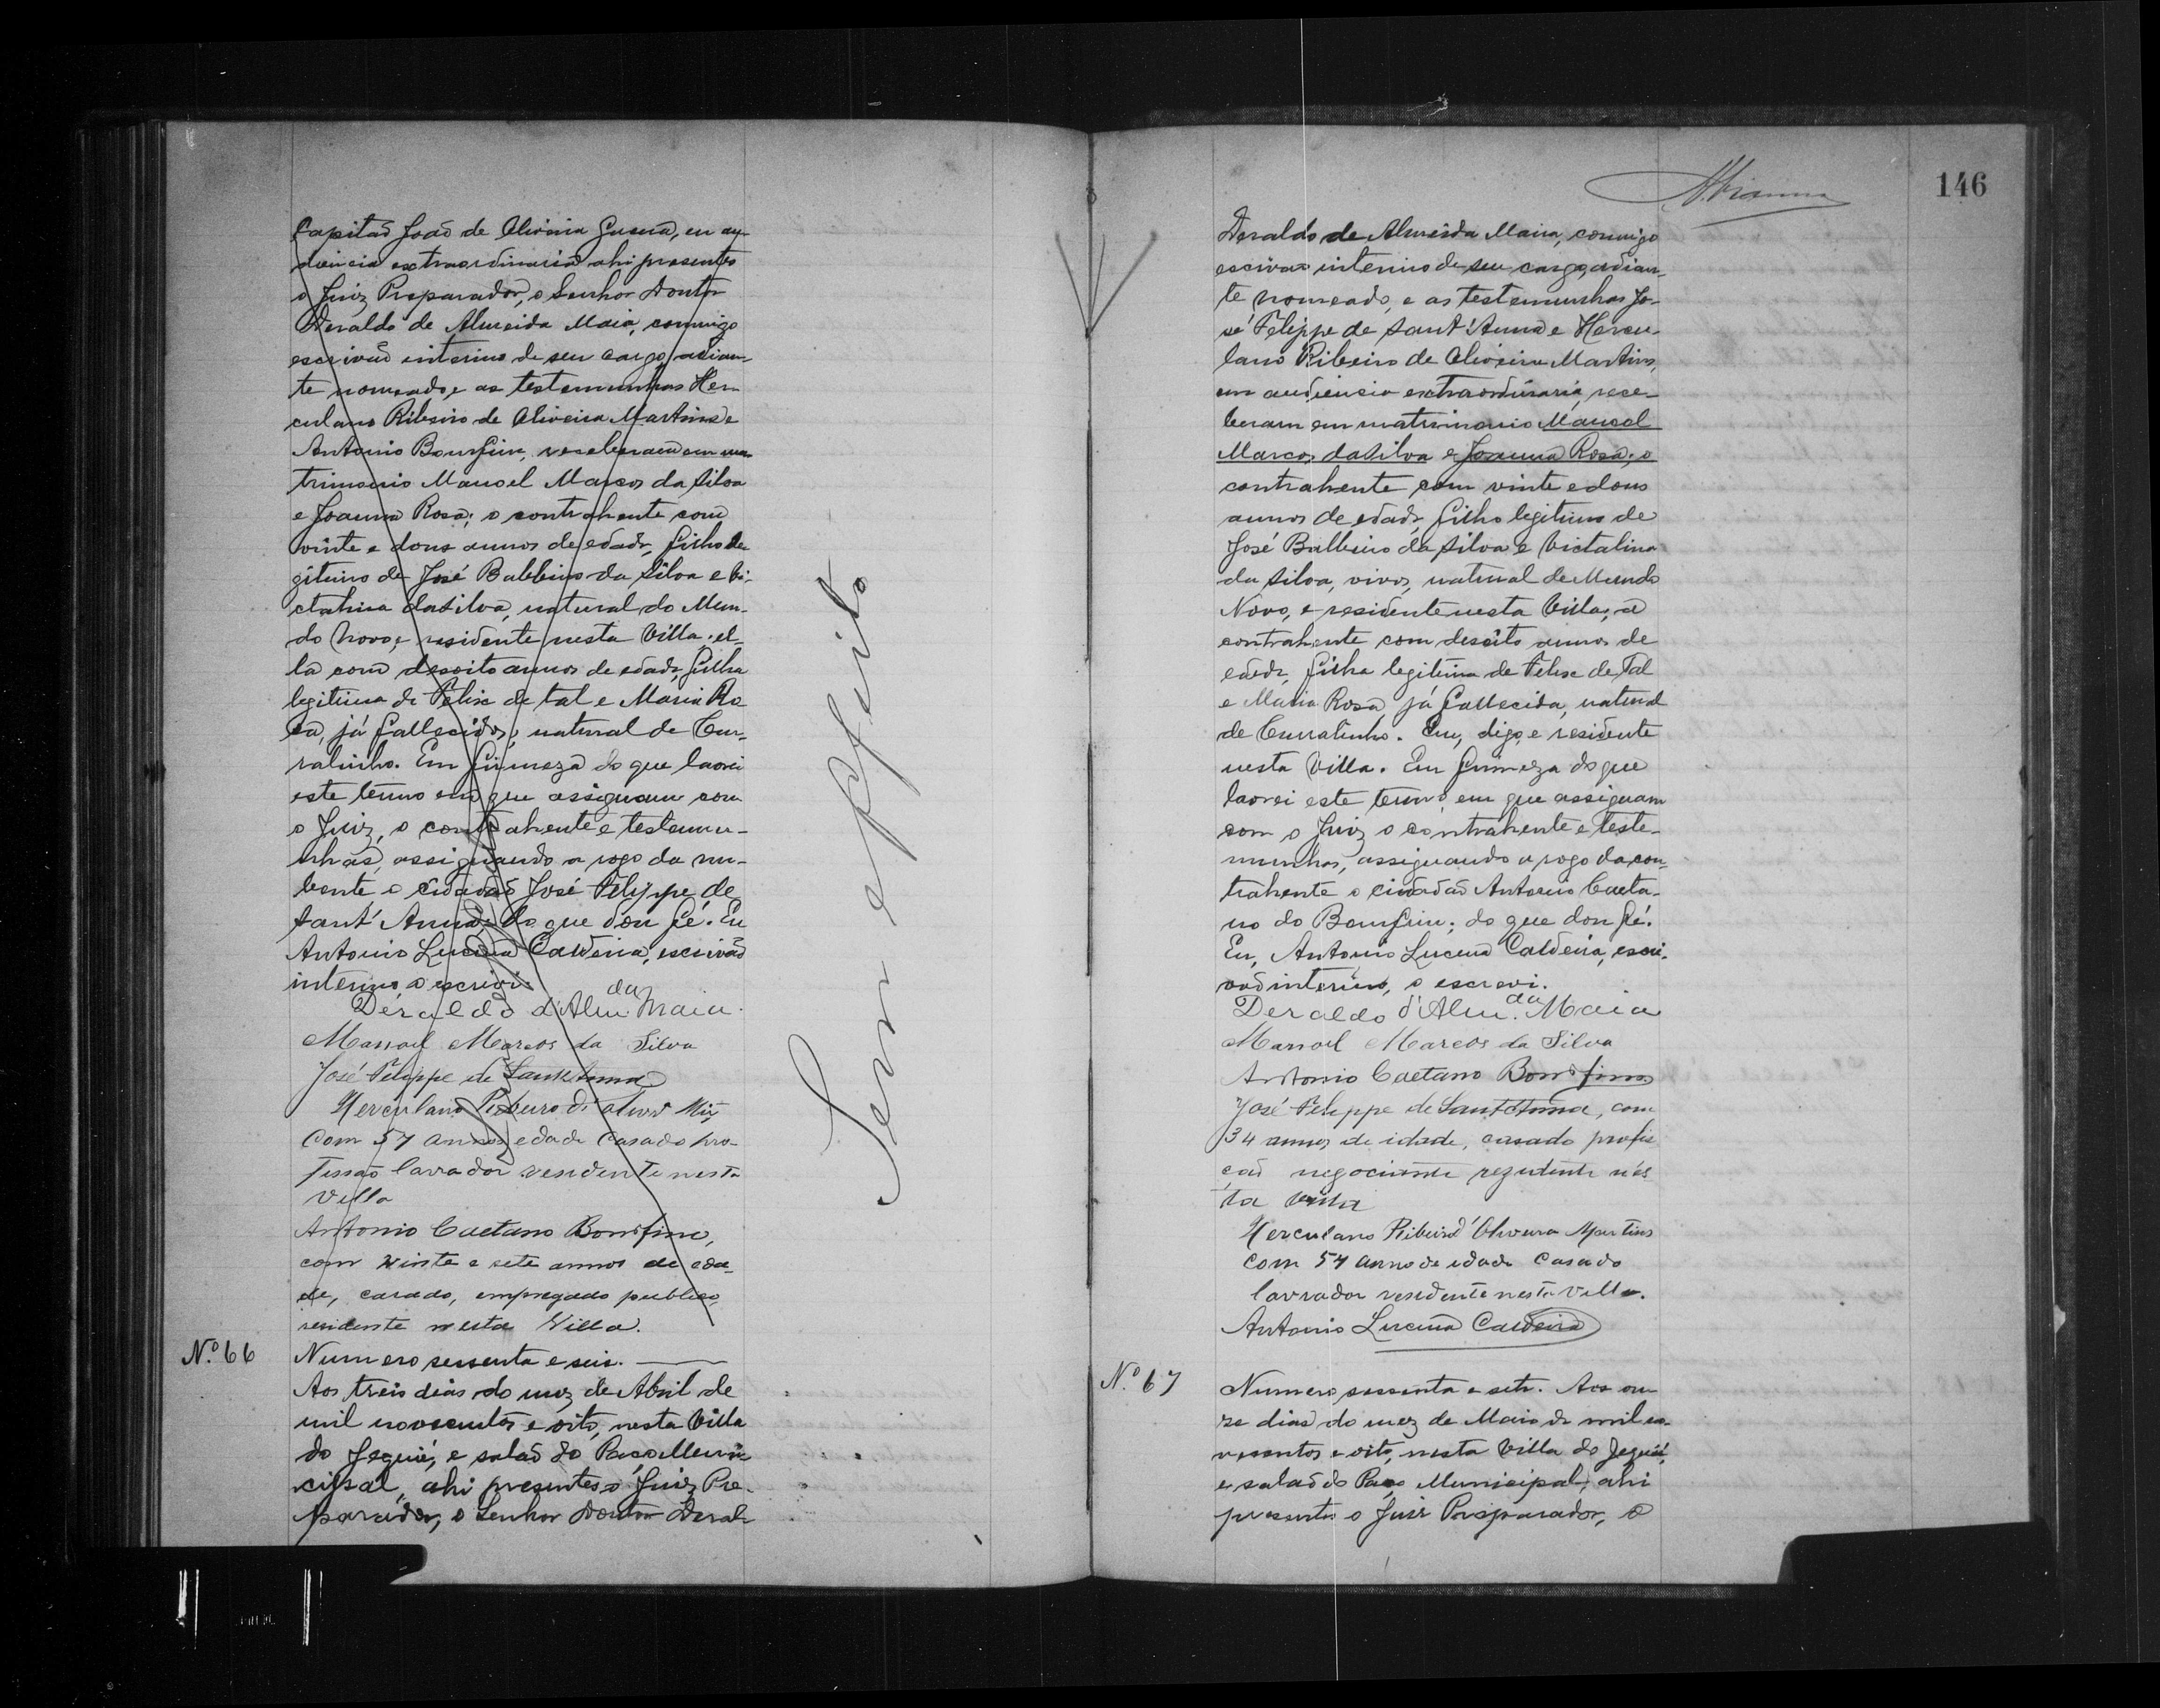 Capitaõ Joaõ de Oliveira Gusmã, em au-
diencia extraordinaria ahi presentes
o Juiz Preparador, o Senhor Doutor
Deraldo de Almeida Maia, commigo
escrivaõ interino de seu cargo, adian-
te nomeado, e as testemunhas Her-
culano Ribeiro de Oliveira Martins e
Antonio Bomfim, receberam em ma-
trimonio Manoel Marcos da Silva
e Joanna Rosa; o contrahente com
vinte e dous annos de edade, filho le-
gitimo de José Balbino da Silva e Vi-
ctalina da Silva, natural do Mun-
do Novo, e residente nesta Villa; el-
la com desoito annos de edade, filha
legitima de Felix de tal e Maria Ro-
sa, já fallecidos, natural de Cur-
ralinho. Em firmeza do que lavrei
este termo em que assignam com
o Juiz, o contrahente e testemu-
nhas, assignando a rogo da nu-
bente o cidadaõ José Felippe de
Sant'Anna, do que dou fé. Eu
Antonio Lucena Caldeira, escrivaõ
interino o escrevi.
Deraldo d'Alm.da Maia.
Manoel Marcos da Silva
José Felippe de Sant'Anna
Herculano Ribeiro d'Olivr Miz
Com 57 annos edade Casado pro-
fissaõ lavrador residente nesta
Villa
Antonio Caetano Bomfim,
com vinte e sete annos de eda-
de, casado, empregado publico,
residente nesta Villa.
Sem effeito
N.º 66
Numero sessenta e seis.
Aos treis dias do mez de Abril de
mil novecentos e oito, nesta Villa
do Jequié, e salaõ do Paço Muni-
cipal, ahi presentes o Juiz Pre-
parador, o Senhor Doutor Deral-
146
Deraldo de Almeida Maia, commigo
escrivaõ interino de seu cargo, adian-
te nomeado, e as testemunhas Jo-
sé Felippe de Sant'Anna e Hercu-
lano Ribeiro de Oliveira Martins,
em audiencia extraordinaria, rece-
beram em matrimonio Manoel
Marcos da Silva e Joanna Rosa; o
contrahente com vinte e dous
annos de edade, filho legitimo de
José Balbino da Silva e Victalina
da Silva, vivos, natural de Mundo
Novo, e residente nesta Villa; a
contrahente com desoito annos de
edade, filha legitima de Felix de Tal
e Maria Rosa já fallecida, natural
de Curralinho. Em, digo, e residente
nesta Villa. Em firmeza do que
lavrei este termo, em que assignam
com o Juiz o contrahente e teste-
munhas, assignando a rogo da con-
trahente o cidadaõ Antonio Caeta-
no do Bomfim; do que dou fé.
Eu, Antonio Lucena Caldeira, escri-
vaõ interino, o escrevi.
Deraldo d'Alm.da Maia
Manoel Marcos da Silva
Antonio Caetano Bomfim
José Felippe de Sant'Anna, com
34 annos de idade, casado profis
çaõ negociante rezidente nés
ta Villa
Herculano Ribeiro d'Oliveira Martins
com 57 anno de idade Casado
lavrador residente nesta Villa.
Antonio Lucena Caldeira
N.º 67
Numero sessenta e sete. Aos on
ze dias do mez de Maio de mil no-
vecentos e oito, nesta Villa do Jequié,
e salaõ do Paço Municipal, ahi
presentes o Juiz Preparador, o